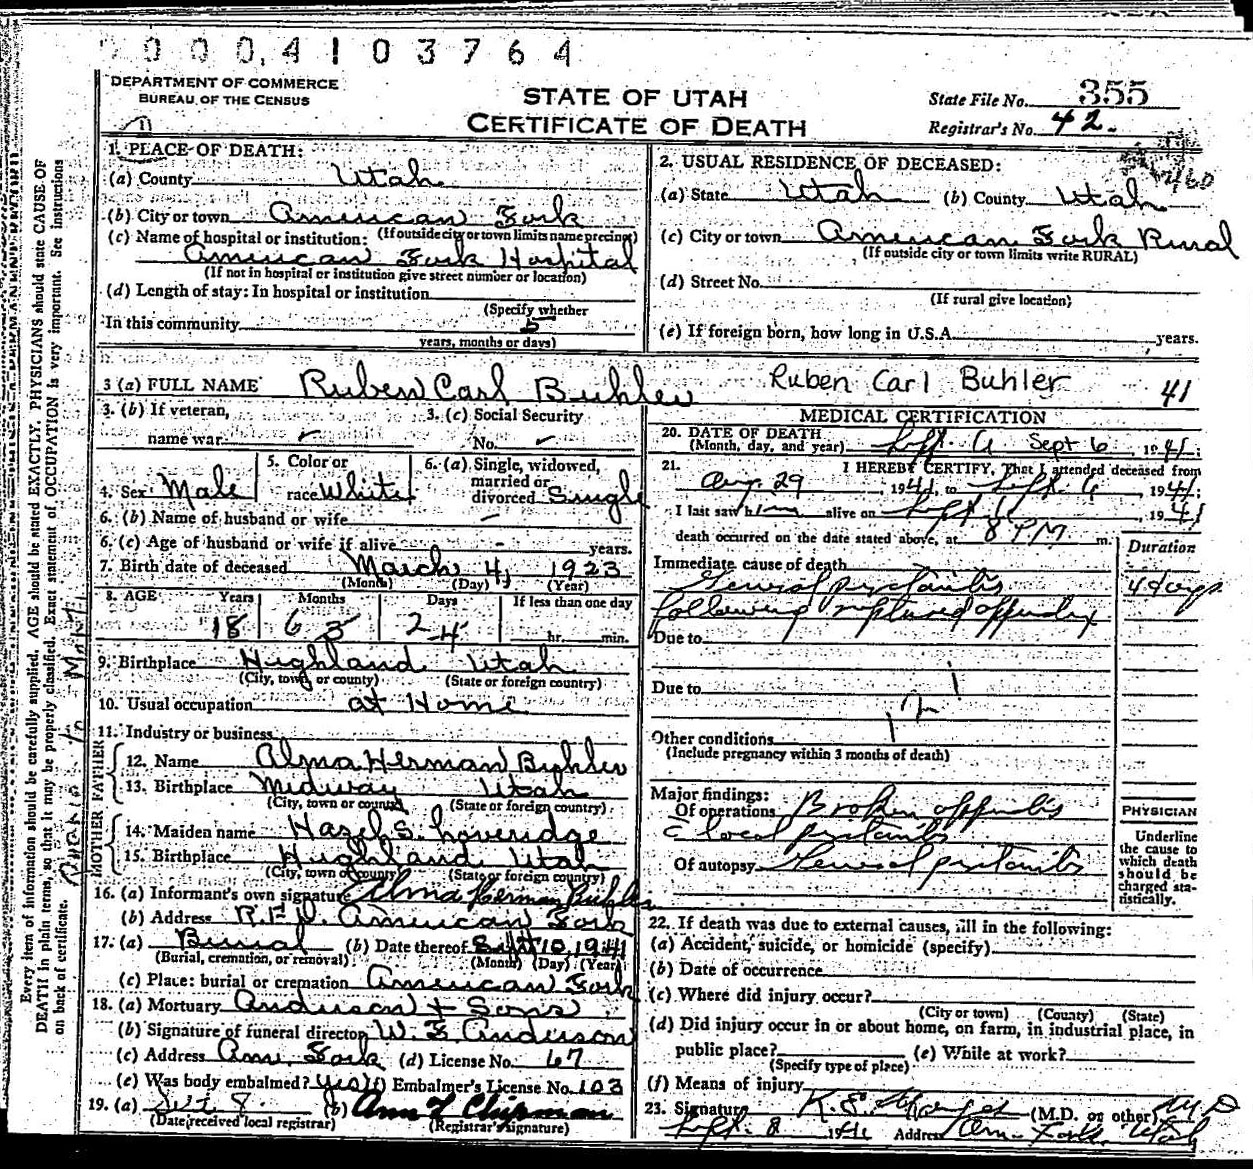 0 0 0 4 1 0 3 7 6 4
355
DEPARTMENT OF COMMERCE
BUREAU OF THE CENSUS
STATE OF UTAH
CERTIFICATE OF DEATH
State File No. 355
Registrar's No. 42.
1. PLACE OF DEATH:
(a) County Utah
(b) City or town American Fork
(If outside city or town limits name precinct)
(c) Name of hospital or institution:
American Fork Hospital
(If not in hospital or institution give street number or location)
(d) Length of stay: In hospital or institution
(Specify whether
In this community
years, months or days)
2. USUAL RESIDENCE OF DECEASED:
460
(a) State Utah (b) County Utah
(c) City or town American Fork Rural
(If outside city or town limits write RURAL)
(d) Street No.
(If rural give location)
(e) If foreign born, how long in U.S.A. years.
3 (a) FULL NAME Ruben Carl Buhler Ruben Carl Buhler 41
3. (b) If veteran, name war
3. (c) Social Security No.
4. Sex Male
5. Color or race White
6. (a) Single, widowed, married or divorced Single
6. (b) Name of husband or wife -
6. (c) Age of husband or wife if alive - years.
7. Birth date of deceased March 4, 1923
(Month) (Day) (Year)
8. AGE Years Months Days If less than one day
18 6 5 2 4 hr. min.
9. Birthplace Highland Utah
(City, town, or county) (State or foreign country)
10. Usual occupation at Home
11. Industry or business
FATHER
12. Name Alma Herman Buhler
13. Birthplace Midway Utah
(City, town or county) (State or foreign country)
MOTHER
14. Maiden name Hazel S. Loveridge
15. Birthplace Highland Utah
(City, town or county) (State or foreign country)
16. (a) Informant's own signature Alma Herman Buhler
(b) Address R.F.D. American Fork
17. (a) Burial (b) Date thereof Sept 10, 1941
(Burial, cremation, or removal) (Month) (Day) (Year)
(c) Place: burial or cremation American Fork
18. (a) Mortuary Anderson + Sons
(b) Signature of funeral director W. E. Anderson
(c) Address Am. Fork (d) License No. 67
(e) Was body embalmed? yes (f) Embalmer's License No. 103
19. (a) Sept 8 (b) Ann L Chipman
(Date received local registrar) (Registrar's signature)
MEDICAL CERTIFICATION
20. DATE OF DEATH
(Month, day, and year) Sept. 6 Sept 6 1941;
21. I HEREBY CERTIFY, That I attended deceased from
Aug. 29, 1941, to Sept. 6, 1941;
I last saw him alive on Sept 6, 1941
death occurred on the date stated above, at 8 PM m.
Duration
Immediate cause of death
General peritonitis 4 days
following ruptured appendix
Due to
Due to
Other conditions
(Include pregnancy within 3 months of death)
Major findings:
Of operations Broken appendix
c local peritonitis
Of autopsy General peritonitis
PHYSICIAN
Underline
the cause to
which death
should be
charged sta-
tistically.
22. If death was due to external causes, fill in the following:
(a) Accident, suicide, or homicide (specify)
(b) Date of occurrence
(c) Where did injury occur?
(City or town) (County) (State)
(d) Did injury occur in or about home, on farm, in industrial place, in
public place? (e) While at work?
(Specify type of place)
(f) Means of injury
23. Signature (M.D. or other) M D
Sept. 8 1941 Address Am. Fork, Utah
Every item of information should be carefully supplied. AGE should be stated EXACTLY. PHYSICIANS should state CAUSE OF
DEATH in plain terms, so that it may be properly classified. Exact statement of OCCUPATION is very important. See instructions
on back of certificate.